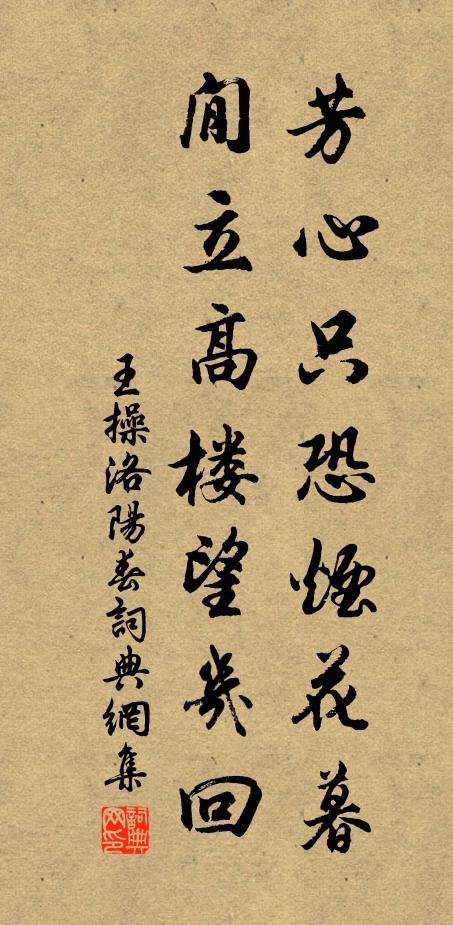 芳心只恐煙花暮
閒立高楼望幾回
王操洛陽春詞典網集
詞典网印